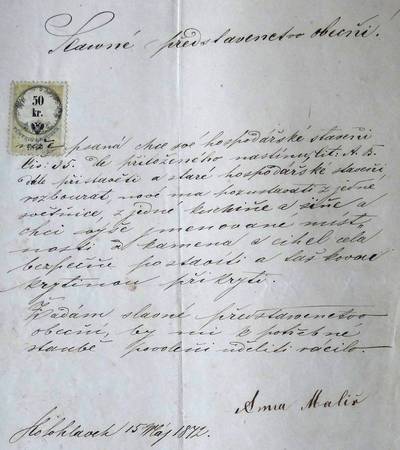 Slavné představenstvo obecní!
50
kr.
níže psaná chce své hospodářské stavení
Čis: 35. dle přiloženého nástinu, lit: A. B.
dále přistavěti a staré hospodářské stavení,
rozbourat, nové na pozustavati z jedné
světnice, z jedné kuchině a síně a
chci výše jmenované míst,
nosti z kamena a cihel cela
bezpečně postaviti a taškovau
krytinou přikrýti.
Žádám slavné představenstvo
obecní, by mi k potřebné
staubě povolení uděliti ráčilo.
Anna Maliř
15 Máj 1872.